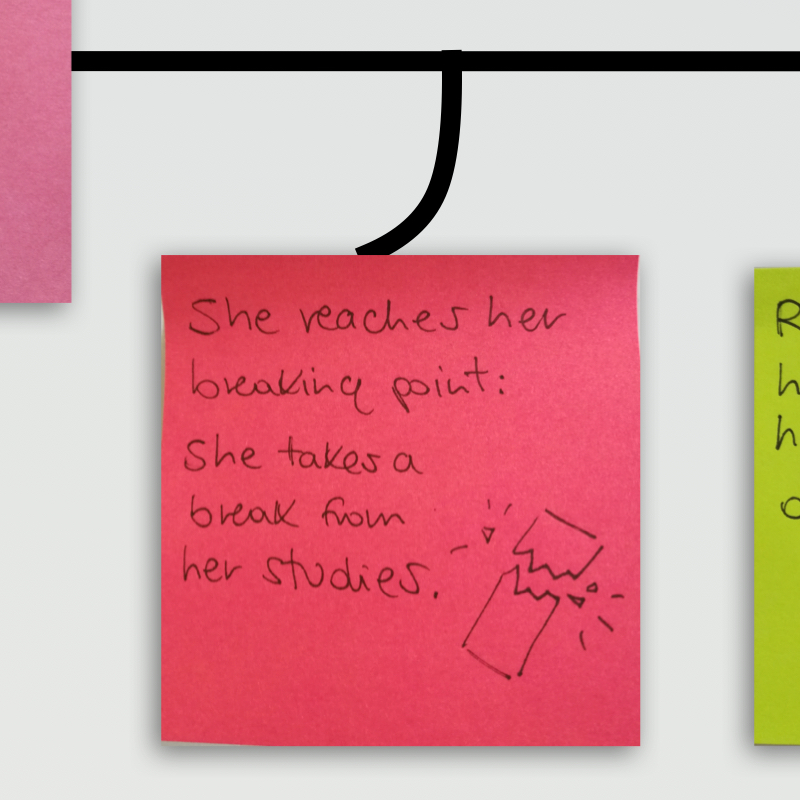 She reaches her
breaking point:
She takes a
break from
her studies.